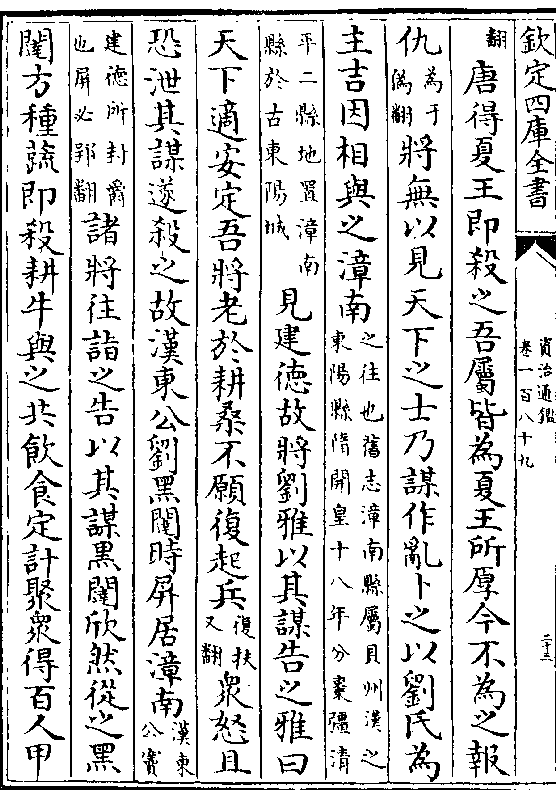 欽定四庫全書
資治通鑑
卷一百八十九
二十三
翻
唐得夏王即殺之吾屬皆為夏王所厚今不為之報
仇
為于
偽翻
將無以見天下之士乃謀作亂卜之以劉氏為
主吉因相與之漳南
之往也舊志漳南縣屬貝州漢之
東陽縣隋開皇十八年分棗彊清
平二縣地置漳南
縣於古東陽城
見建德故將劉雅以其謀告之雅曰
天下適安定吾將老於耕桑不願復起兵
復扶
又翻
衆怒且
恐泄其謀遂殺之故漢東公劉黑闥時屏居漳南
漢東
公竇
建德所封爵
也屏必郢翻
諸將往詣之告以其謀黑闥欣然從之黑
闥方種蔬即殺耕牛與之共飲食定計聚衆得百人甲